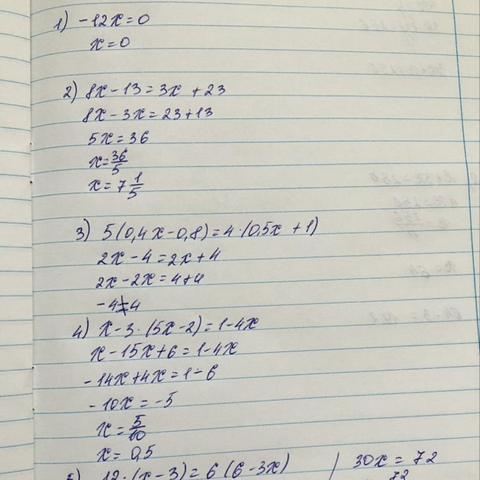 1) -12x=0
x=0
2) 8x-13=3x+23
8x-3x=23+13
5x=36
x=36/5
x=7 1/5
3) 5(0,4x-0,8)=4·(0,5x+1)
2x-4=2x+4
2x-2x=4+4
-4≠4
4) x-3·(5x-2)=1-4x
x-15x+6=1-4x
-14x+4x=1-6
-10x=-5
x=5/10
x=0,5
5) 12·(x-3)=6(6-3x)
30x=72
72